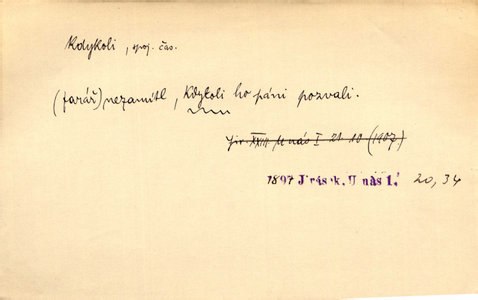 Kdykoli, spoj. čas.
(farář) nezamítl, kdykoli ho páni pozvali.
Jir. XXIII U nás I 21. 10 (1907)
1897 Jirásek, U nás 1. 20, 34